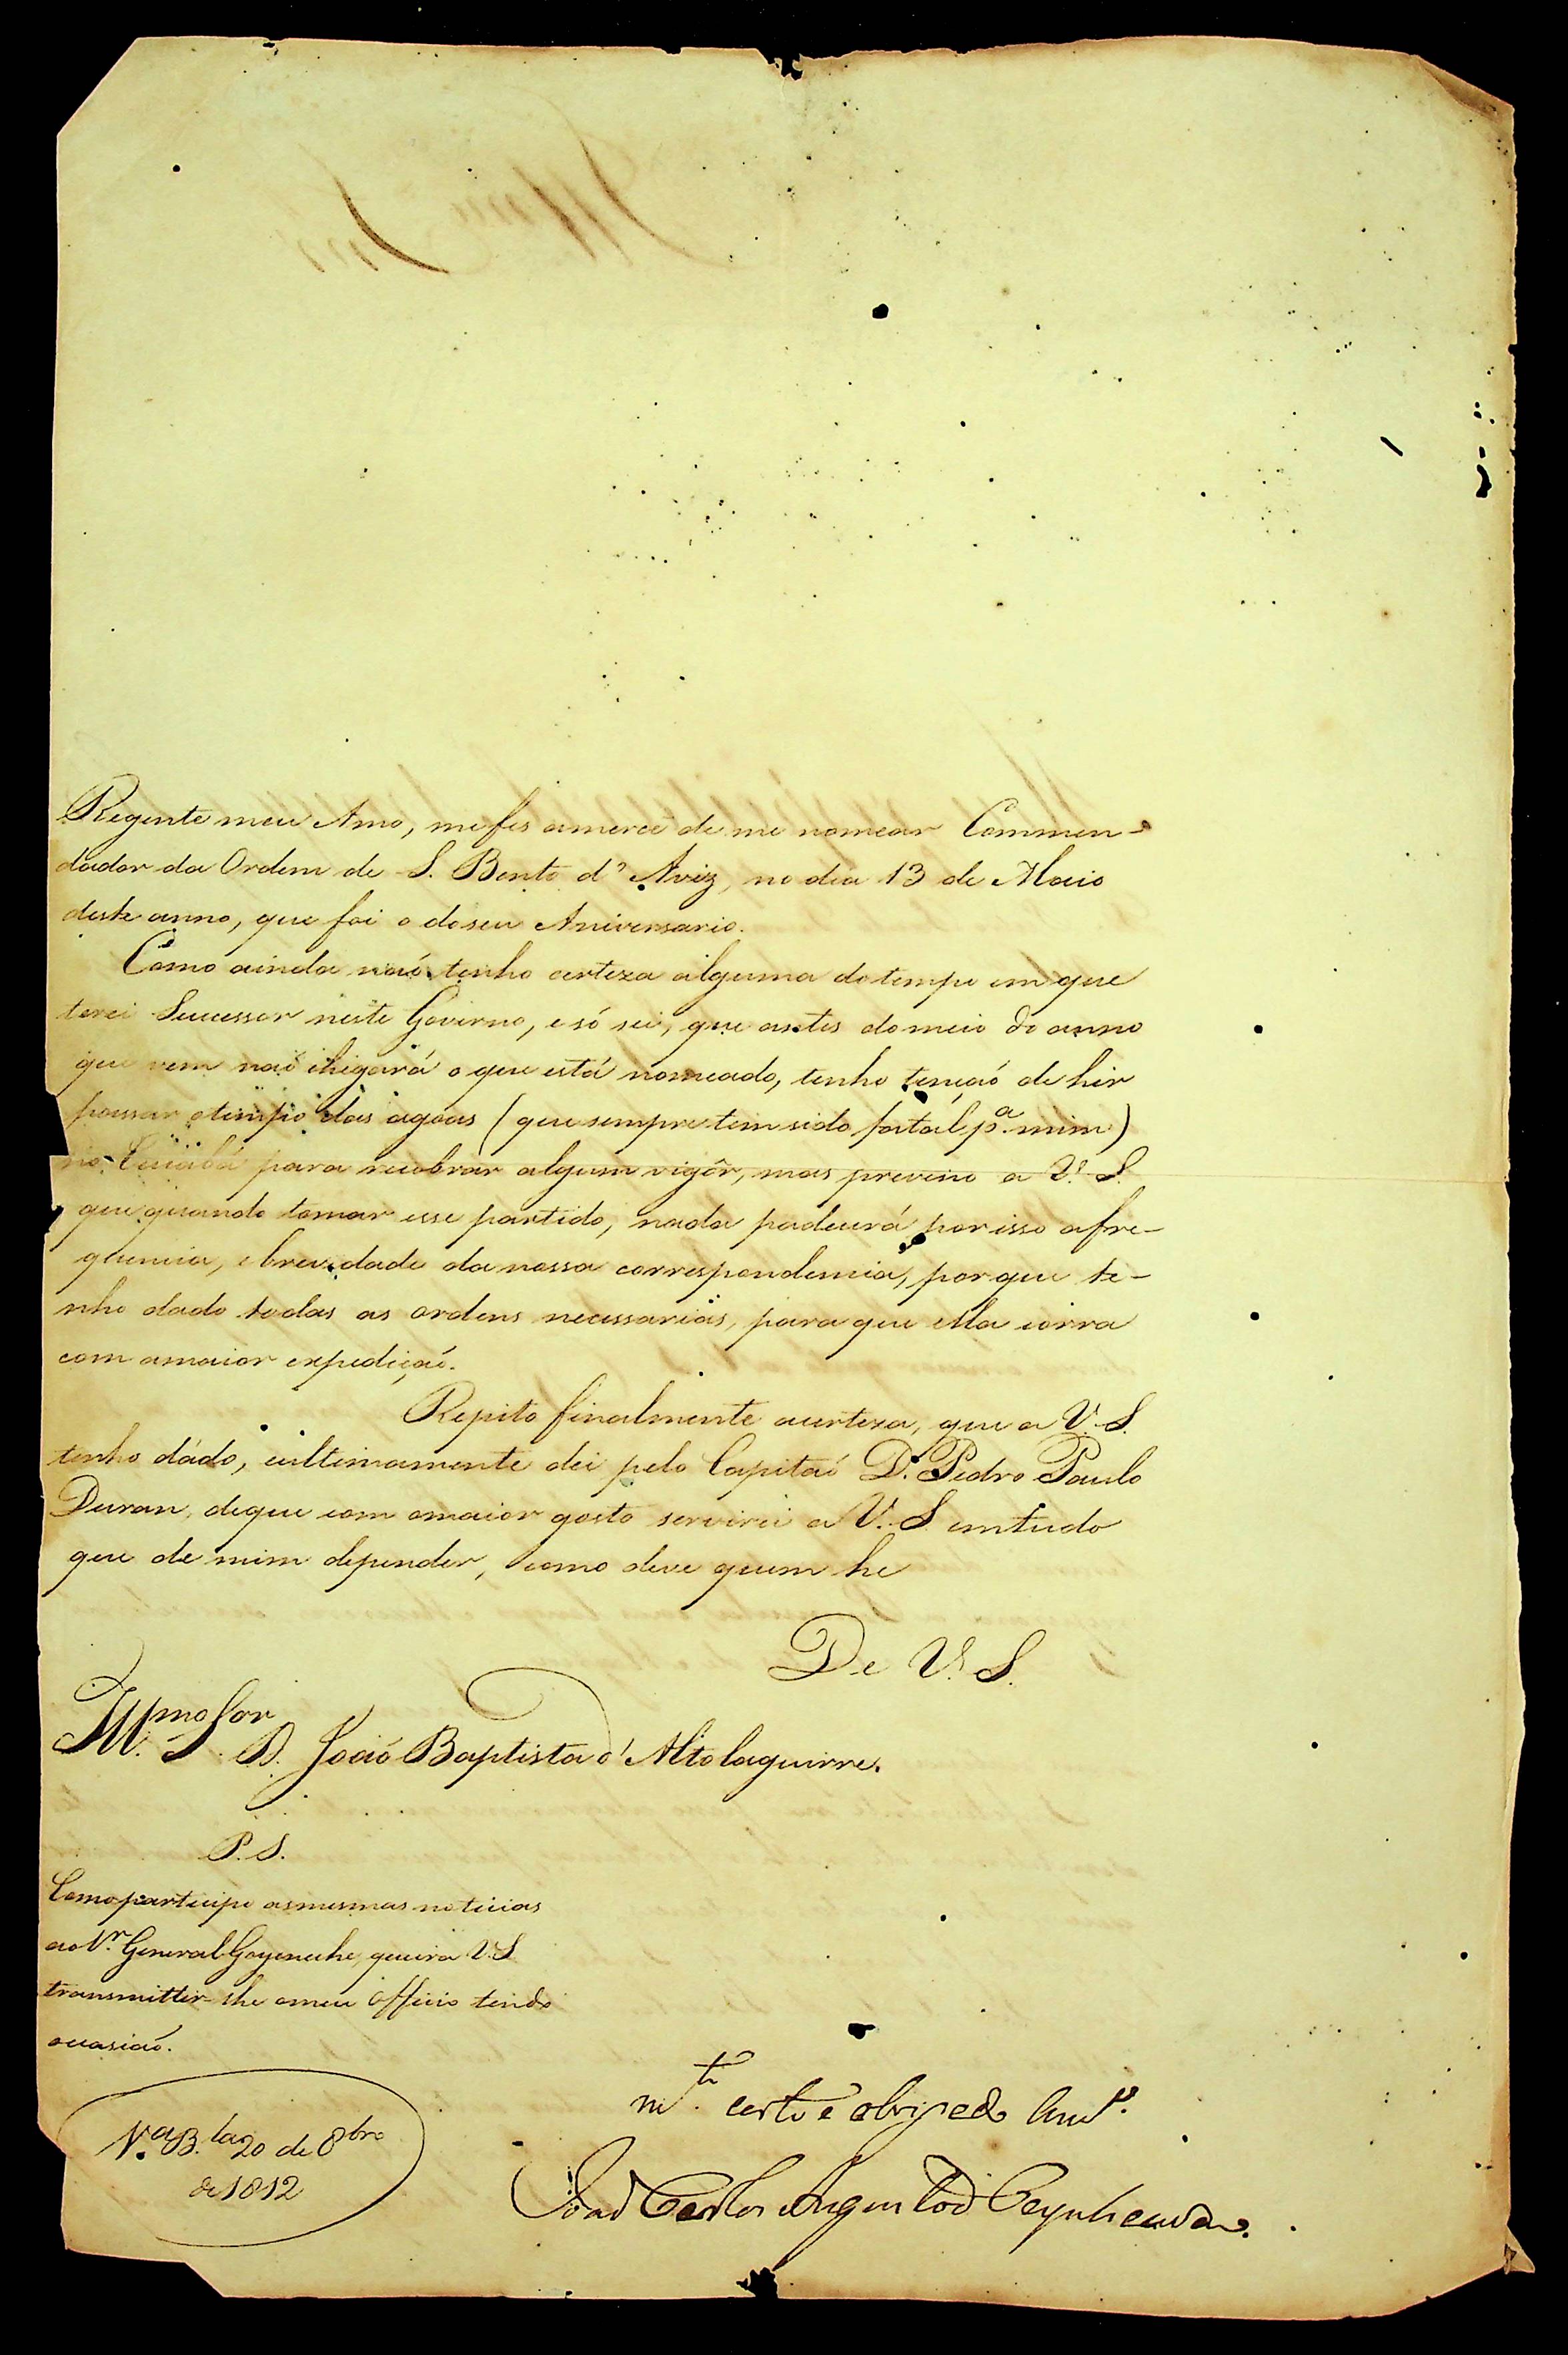 Regente meu Amo, me fes a mercê de me nomear Commen-
dador da Ordem de S. Bento d'Aviz, no dia 13 de Maio
deste anno, que foi o do seu Aniversario.
Como ainda naó tenho certeza alguma do tempo em que
terei Successor neste Governo, e só sei, que antes do meio do anno
que vem naó chegará o que está nomeado, tenho tençaó de hir
passar o tempo das agoas (que sempre tem sido fatal p.ª mim)
no Cuiabá para recobrar algum vigôr, mas previno a V. S.
que quando tomar esse partido, nada padecerá por isso a fre-
quencia, e brevidade da nossa correspondencia, porque te-
nho dado todas as ordens necessarias, para que ella corra
com a maior expediçaó.
Repito finalmente a certeza, que a V. S.
tenho dádo, e ultimamente dei pelo Capitaó D. Pedro Paulo
Duran, de que com o maior gosto servirei a V. S. em tudo
que de mim depender, como deve quem he
De V. S.
Ill.mo Sor D. Joaó Baptista d'Altolaguirre.
P. S.
Como participo as mesmas noticias
ao Sr. General Goyeneche, queira V. S.
transmittir-lhe o meu Officio tendo
occasiaó.
m.to certo e obrigado
V.a B.la 20 de 8bro
de 1812
Joaó Carlos Augusto d'Oeynhausen.